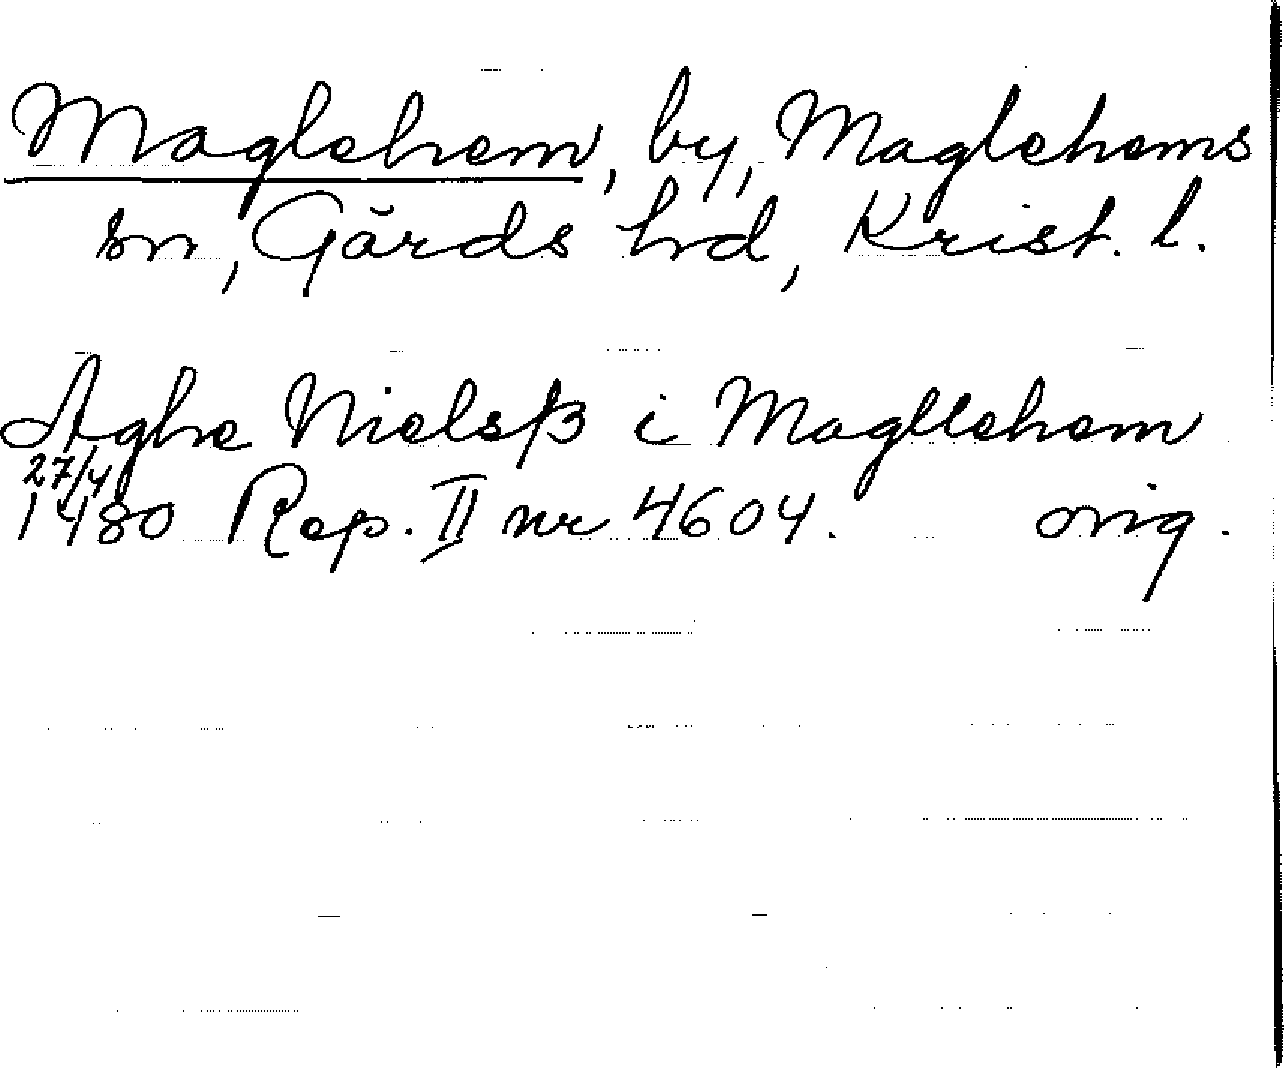 Maglehem, by, Maglehems
sn, Gärds hd, Krist. l.
Aghe Nielsβ i Magllehem
27/4
1480 Rep. II nr 4604. orig.